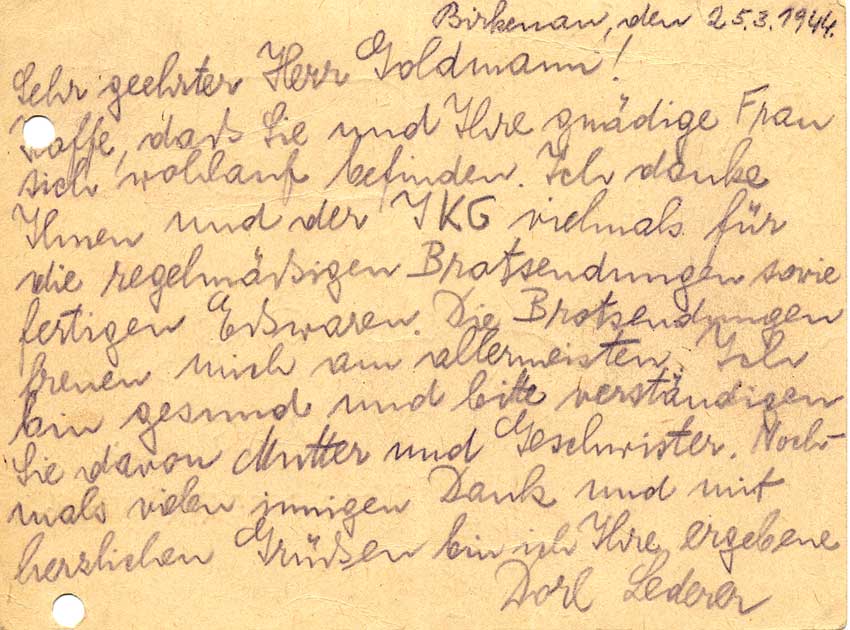 Birkenau, den 25.3.1944.
Sehr geehrter Herr Goldmann!
Hoffe, daß Sie und Ihre gnädige Frau
sich wohlauf befinden. Ich danke
Ihnen und der IKG vielmals für
die regelmäßigen Brotsendungen sowie
fertigen Eßwaren. Die Brotsendungen
freuen mich am allermeisten. Ich
bin gesund und bitte verständigen
Sie davon Mutter und Geschwister. Noch-
mals vielen innigen Dank und mit
herzlichen Grüßen bin ich Ihre ergebene
Dorl Lederer